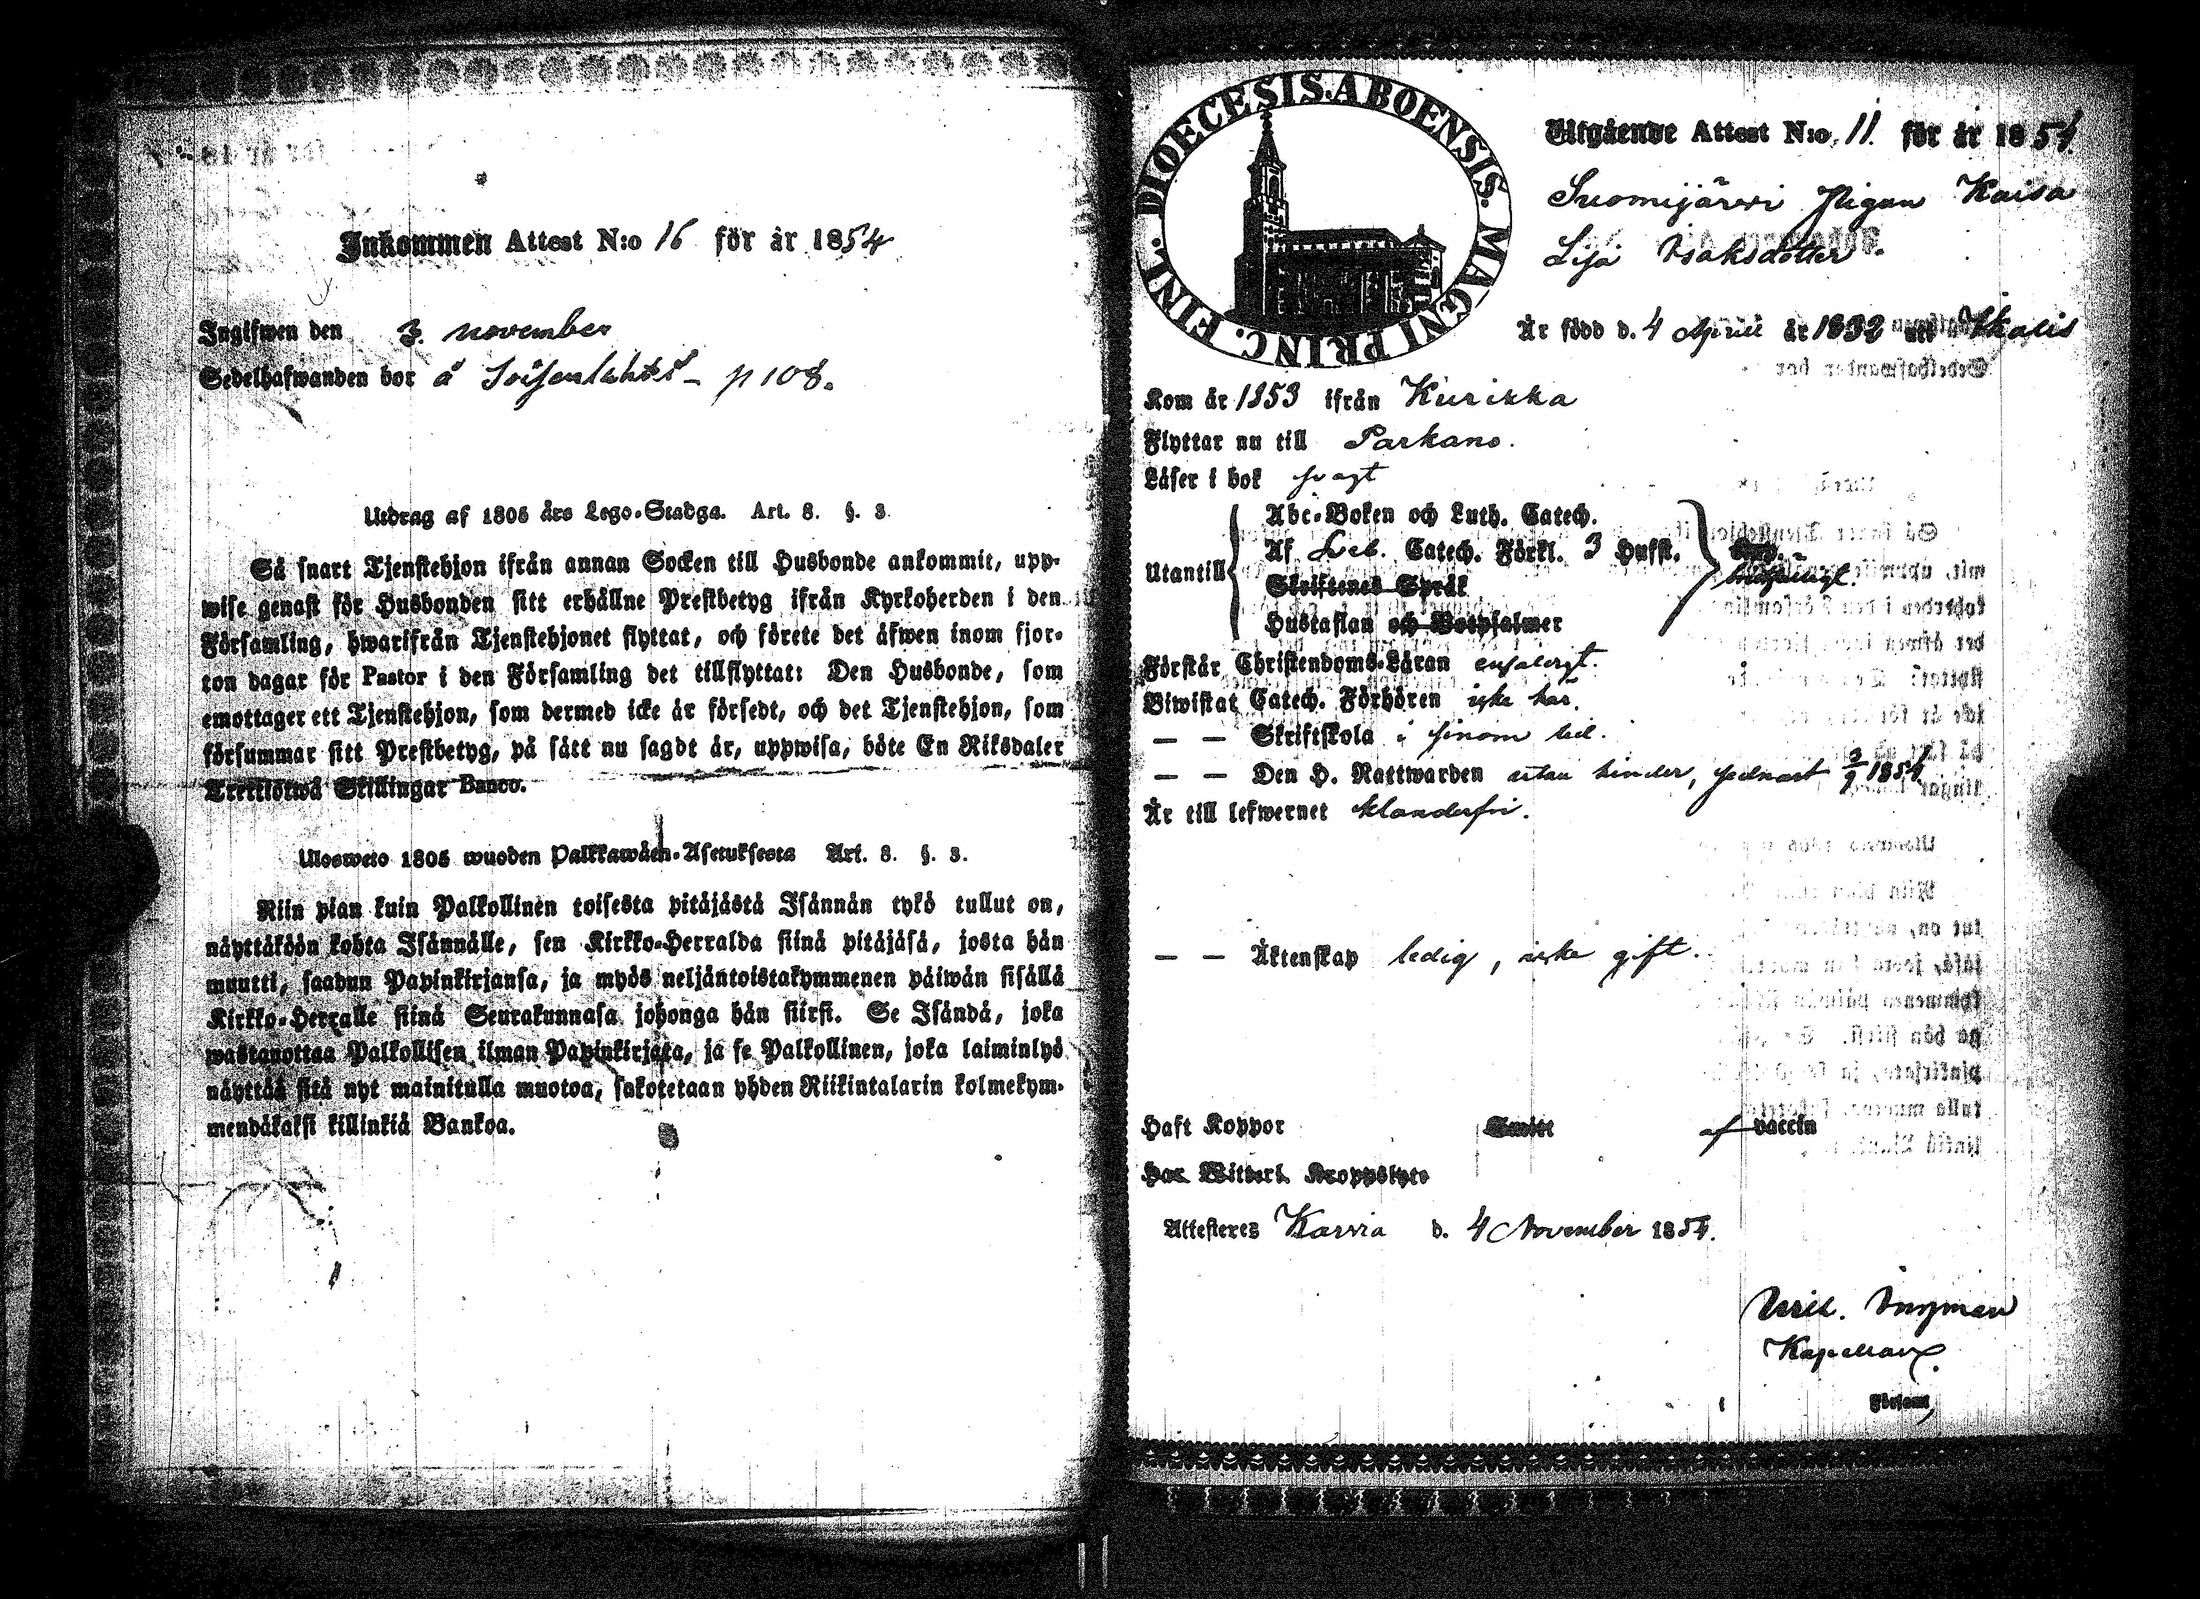 Inkommen Attest N:o 16 för år 1854
Ingifwen den 3. november
Sedelhafwanden bor å p 108.
Utdrag af 1805 års Lego-Stadga. Art. 8. §. 3.
Så snart Tjenstehjon ifrån annan Socken till Husbonde ankommit, upp-
wise genast för Husbonden sitt erhållne Prestbetyg ifrån Kyrkoherden i den
Församling, hwarifrån Tjenstehjonet flyttat, och förete det äfwen inom fjor-
ton dagar för Pastor i den Församling det tillflyttat: Den Husbonde, som
emottager ett Tjenstehjon, som dermed icke är försedt, och det Tjenstehjon, som
försummar sitt Prestbetyg, på sätt nu sagdt är, uppwisa, böte En Riksdaler
Trettiotwå Skillingar Banco.
Ulosweto 1805 wuoden Palkkawäen-Asetuksesta Art. 8. §. 3.
Niin pian kuin Palkollinen toisesta pitäjästä Isännän tykö tullut on,
näyttäköön kohta Isännälle, sen Kirkko-Herralda siinä pitäjäsä, josta hän
muutti, saadun Papinkirjansa, ja myös neljäntoistakymmenen päiwän sisällä
Kirkko-Herralle siinä Seurakunnasa johonga hän siirsi. Se Isändä, joka
wastanottaa Palkollisen ilman Papinkirjata, ja se Palkollinen, joka laiminlyö
näyttää sitä nyt mainitulla muotoa, sakotetaan yhden Riikintalarin kolmekym-
mendäkaksi killinkiä Bankoa.
DIOECESIS ABOENSIS. MAGNI PRINC. FINL.
Utgående Attest N:o 11. för år 1854.
Suomijärwi Pigan Kaisa
Lisa Isaksdotter.
Är född d. 4 April år 1832 uti Ikalis
Kom år 1853 ifrån Kurikka
Flyttar nu till Parkano.
Läser i bok swagt
Utantill
Abc-Boken och Luth. Catech.
Af Catech. Förkl. 3 Hufst.
Skriftenes Språk
Hustaflan och Botpsalmer
Förstår Christendoms-Läran enfaldigt.
Biwistat Catech. Förhören icke här.
— — Skriftskola i sinom tid.
— — Den H. Nattwarden utan hinder, sednast 3/9 1854
Är till lefwernet klanderfri.
— — Äktenskap ledig, icke gift.
Haft Koppor Smitt af vaccin
Har Witterl. Kroppslyte
Attesteras Karvia d. 4 November 1854.
Ingman
Kapellan.
Församl,